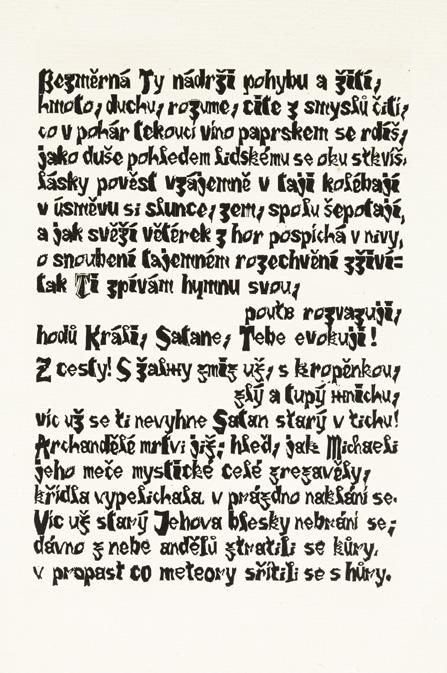 Bezměrná Ty nádrži pohybu a žití,
hmoto, duchu, rozume, cite z smyslů čití,
co v pohár tekoucí víno paprskem se rdíš,
jako duše pohledem lidskému se oku stkvíš.
lásky pověst vzájemně v taji kolébají
v úsměvu si slunce, zem, spolu šepotají,
a jak svěží větérek z hor pospíchá v nivy,
o snoubení tajemném rozechvění zživí=
tak Ti zpívám hymnu svou,
pouta rozvazuji,
hodů Králi, Satane, Tebe evokuji!
Z cesty! S žalmy zmiz už, s kropěnkou,
zlý a tupý mnichu,
víc už se ti nevyhne Satan starý v tichu!
Archandělé mrtvi již; hleď, jak Michaeli
jeho meče mystické celé zrezavěly,
křídla vypelichala v prázdno naklání se.
Víc už starý Jehova blesky nebrání se;
dávno z nebe andělů ztratili se kůry.
v propast co meteory sřítili se s hůry.